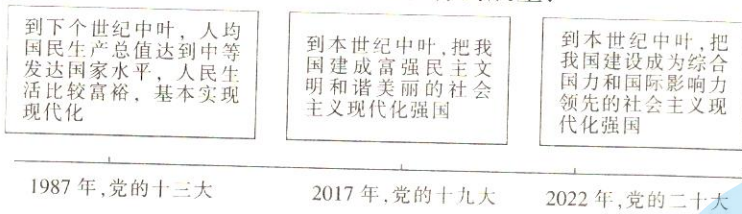 到下个世纪中叶，人均
国民生产总值达到中等
发达国家水平，人民生
活比较富裕，基本实现
现代化
到本世纪中叶，把我
国建成富强民主文
明和谐美丽的社会
主义现代化强国
到本世纪中叶，把
我国建设成为综合
国力和国际影响力
领先的社会主义现
代化强国
1987年，党的十三大
2017年，党的十九大
2022年，党的二十大